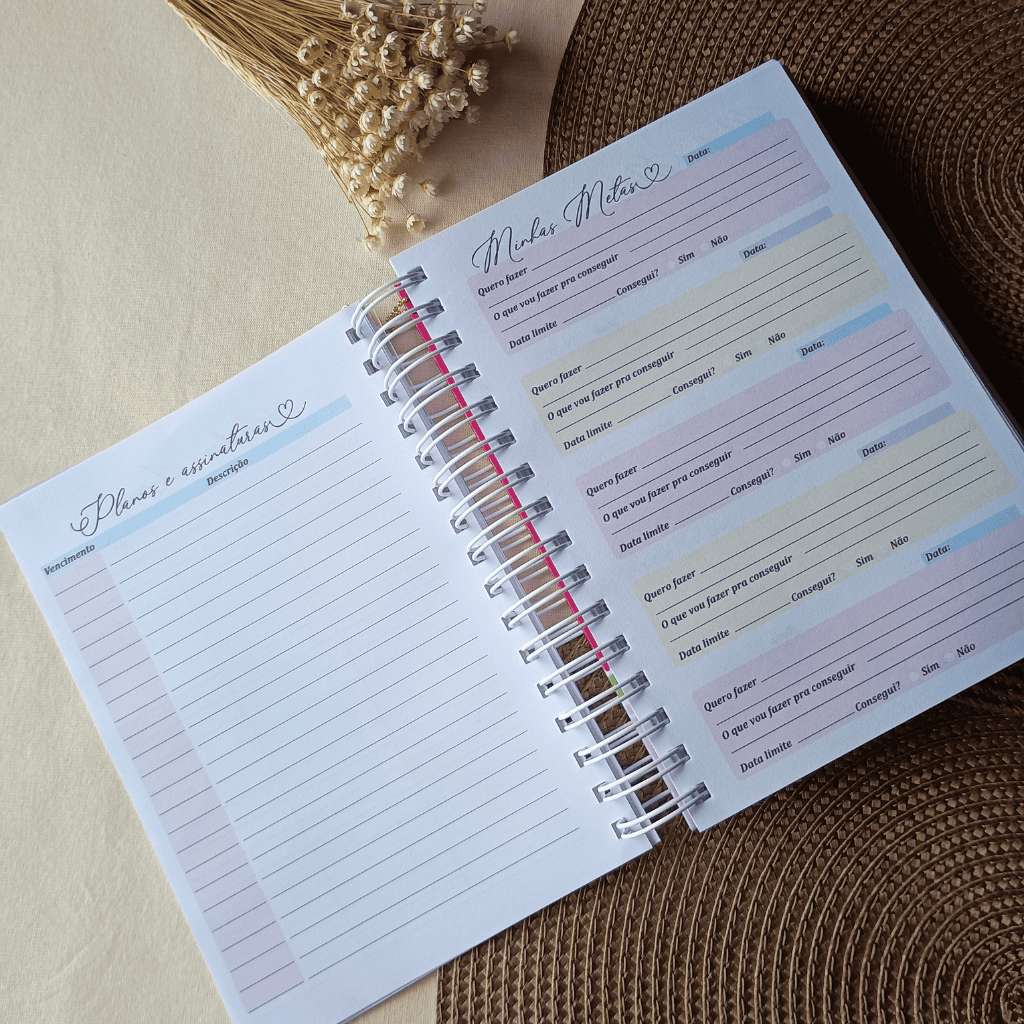 Planos e assinaturas
Vencimento Descrição
Minhas Metas
Data:
Quero fazer
O que vou fazer pra conseguir
Data limite Consegui? Sim Não
Data:
Quero fazer
O que vou fazer pra conseguir
Data limite Consegui? Sim Não
Data:
Quero fazer
O que vou fazer pra conseguir
Data limite Consegui? Sim Não
Data:
Quero fazer
O que vou fazer pra conseguir
Data limite Consegui? Sim Não
Data:
Quero fazer
O que vou fazer pra conseguir
Data limite Consegui? Sim Não